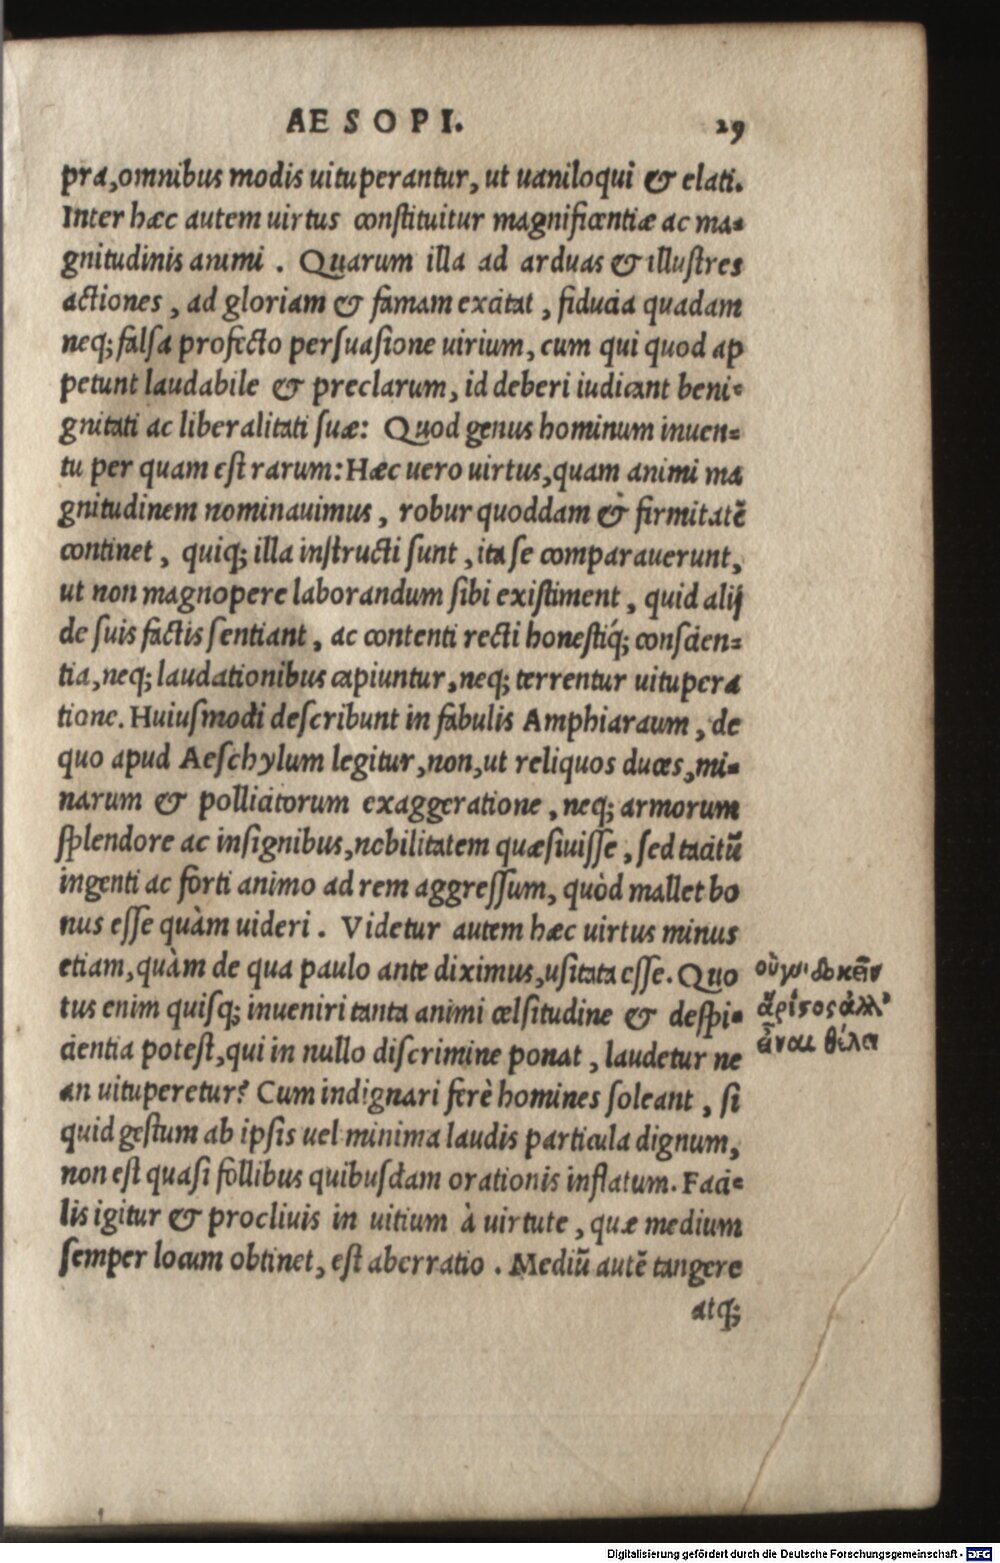 AESOPI. 29
pra, omnibus modis uituperantur, ut uaniloqui & elati.
Inter hæc autem uirtus constituitur magnificentiæ ac ma-
gnitudinis animi. Quarum illa ad arduas & illustres
actiones, ad gloriam & famam excitat, fiducia quadam
neq; falsa profecto persuasione uirium, cum qui quod ap
petunt laudabile & preclarum, id deberi iudicant beni-
gnitati ac liberalitati suæ: Quod genus hominum inuen-
tu per quam est rarum: Hæc uero uirtus, quam animi ma
gnitudinem nominauimus, robur quoddam & firmitatē
continet, quiq; illa instructi sunt, ita se comparauerunt,
ut non magnopere laborandum sibi existiment, quid alij
de suis factis sentiant, ac contenti recti honestiq́; conscien-
tia, neq; laudationibus capiuntur, neq; terrentur uitupera
tione. Huiusmodi describunt in fabulis Amphiaraum, de
quo apud Aeschylum legitur, non, ut reliquos duces, mi-
narum & pollicitorum exaggeratione, neq; armorum
splendore ac insignibus, nobilitatem quæsiuisse, sed tacitū
ingenti ac forti animo ad rem aggressum, quòd mallet bo
nus esse quàm uideri. Videtur autem hæc uirtus minus
etiam, quàm de qua paulo ante diximus, usitata esse. Quo
tus enim quisq; inueniri tanta animi celsitudine & despi-
cientia potest, qui in nullo discrimine ponat, laudetur ne
an uituperetur? Cum indignari ferè homines soleant, si
quid gestum ab ipsis uel minima laudis particula dignum,
non est quasi follibus quibusdam orationis inflatum. Faci-
lis igitur & procliuis in uitium à uirtute, quæ medium
semper locum obtinet, est aberratio. Mediū autē tangere
atq;
δοκεῖν
ἄριστος ἀλλ'
Digitalisierung gefördert durch die Deutsche Forschungsgemeinschaft - DFG